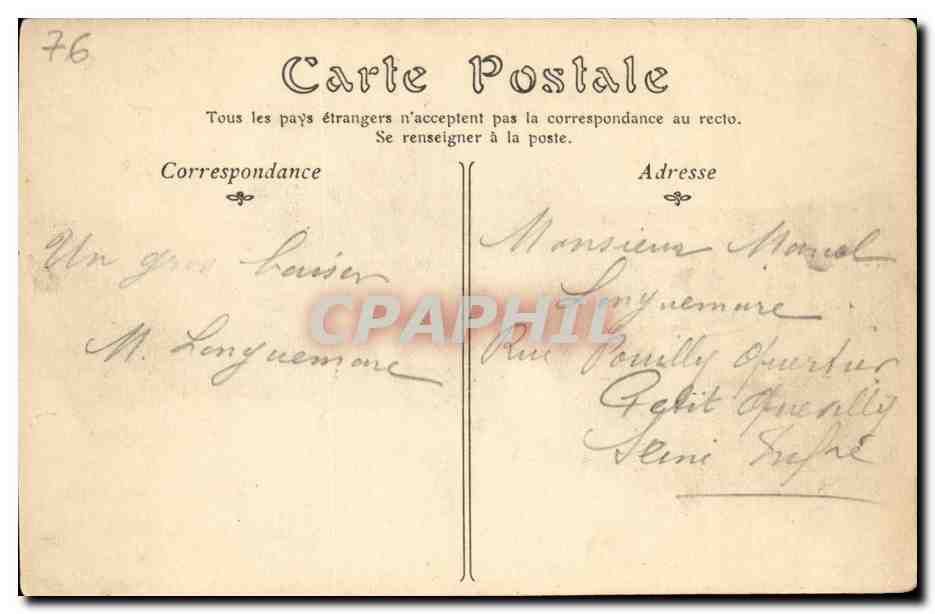 76
Carte Postale
Tous les pays étrangers n'acceptent pas la correspondance au recto.
Se renseigner à la poste.
Correspondance
Un gros baiser
M. Longuemare
Adresse
Monsieur Marcel
Longuemare
Rue Pouilly Quartier
Petit Quevilly
Seine Infre
CPAPHIL